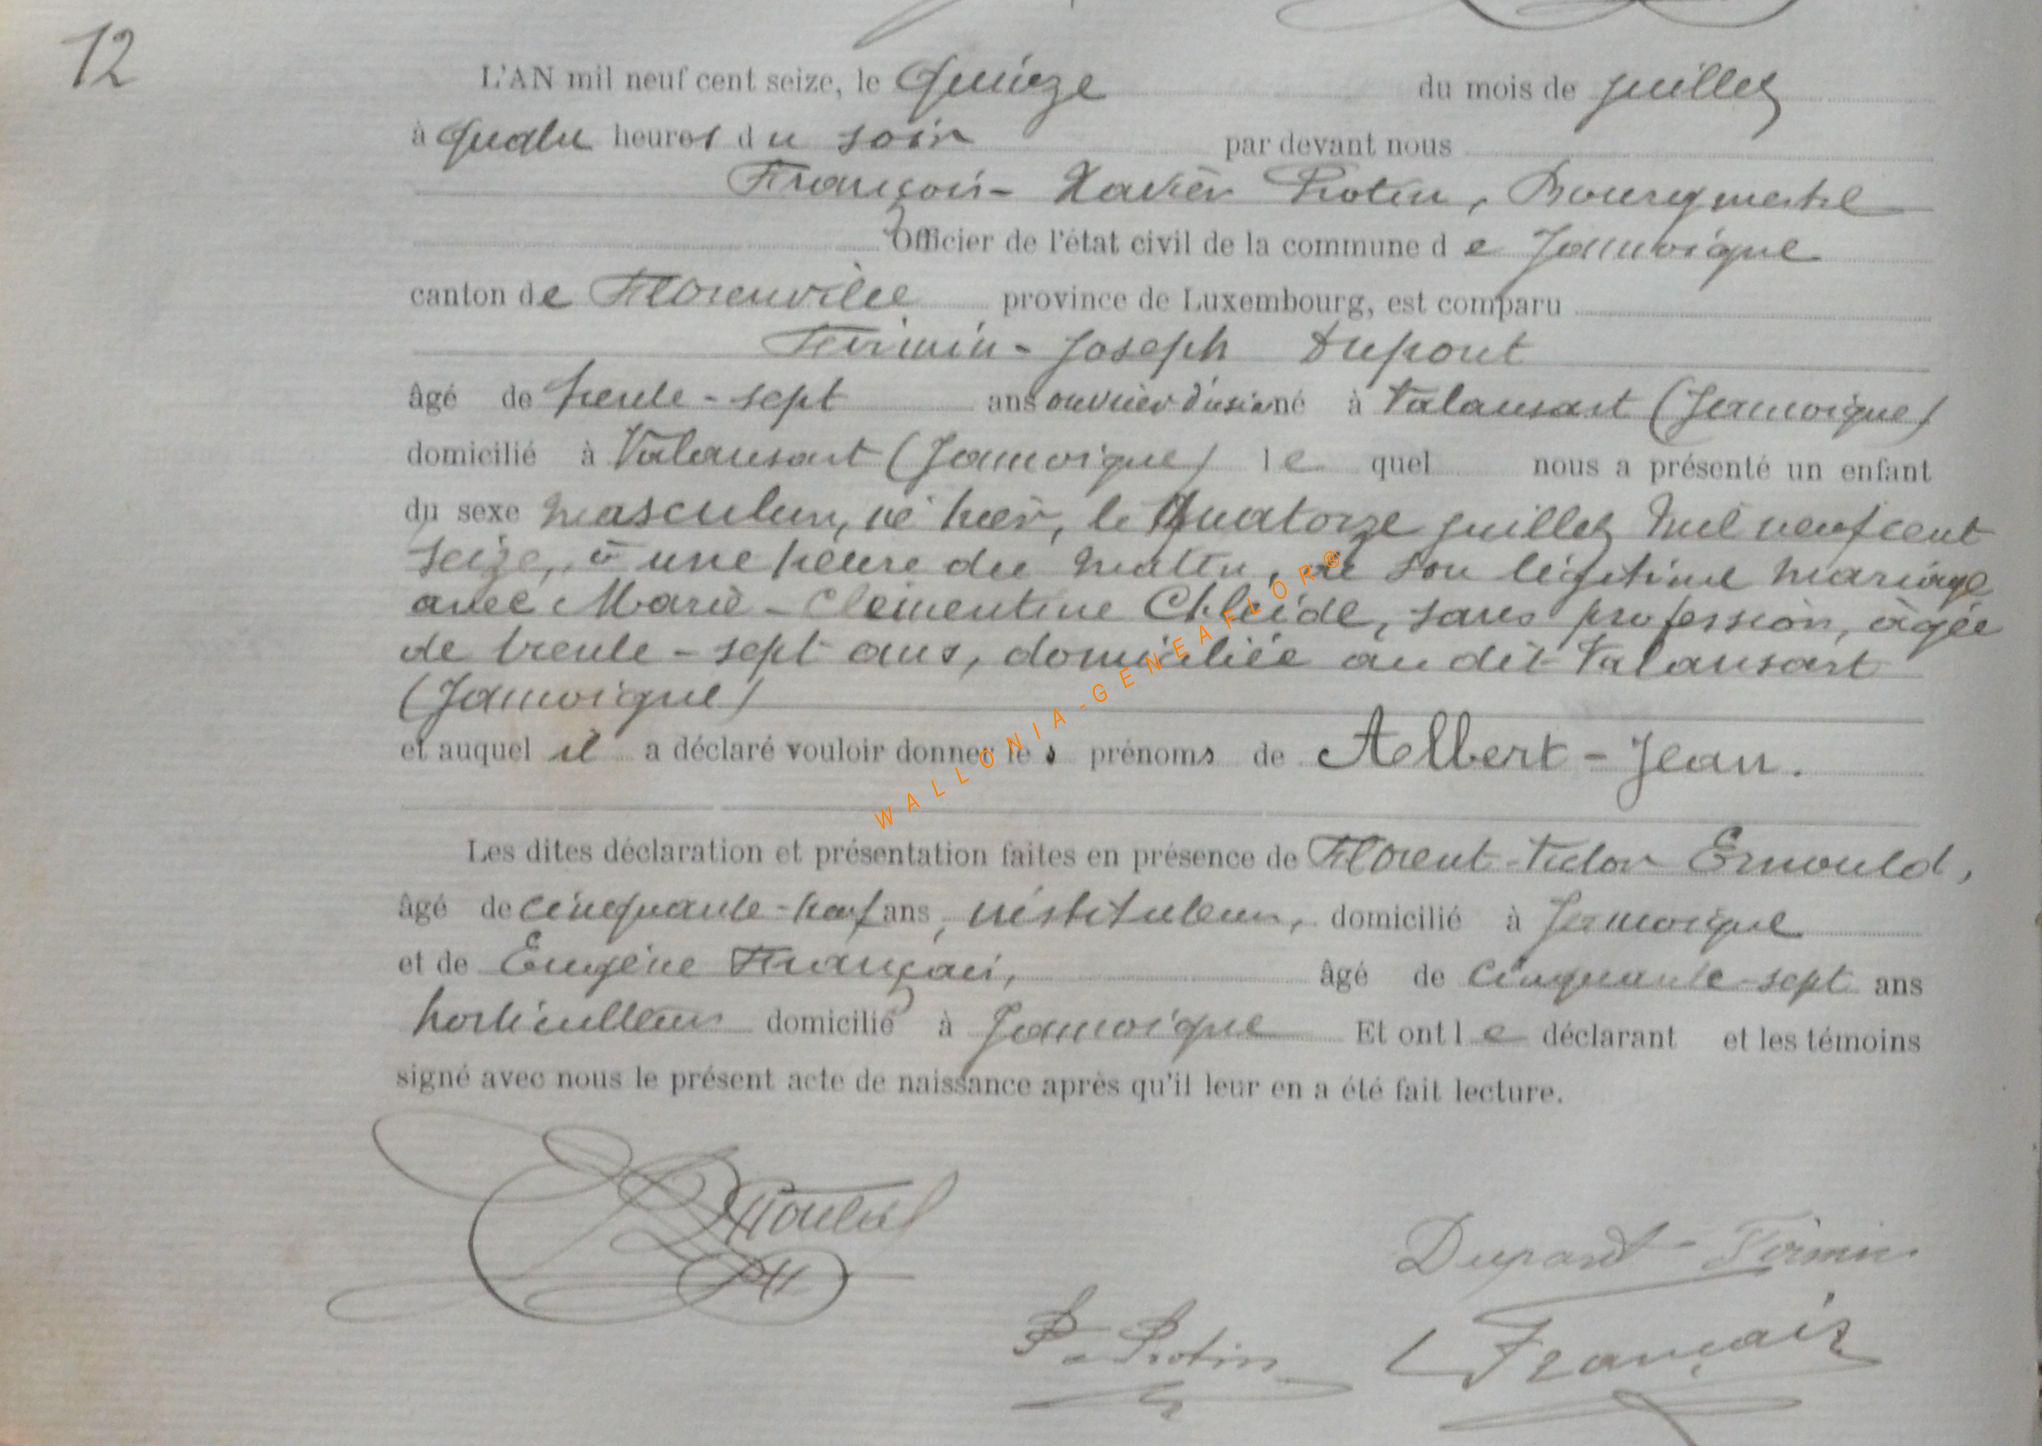 12
L'AN mil neuf cent seize, le Quinze du mois de juillet
à quatre heures du soir par devant nous
François-Xavier Protin, Bourgmestre
Officier de l'état civil de la commune de Jamoigne
canton de Florenville province de Luxembourg, est comparu
Firmin-Joseph Dupont
âgé de trente-sept ans ouvrier d'usine né à Valansart (Jamoigne)
domicilié à Valansart (Jamoigne) lequel nous a présenté un enfant
du sexe masculin, né hier, le Quatorze juillet mil neuf cent
seize, à une heure du matin, de son légitime mariage
avec Marie-Clémentine Chleide, sans profession, âgée
de trente-sept ans, domiciliée au dit Valansart
(Jamoigne)
et auquel il a déclaré vouloir donner les prénoms de Albert-Jean.
Les dites déclaration et présentation faites en présence de Florent-Victor Ernould,
âgé de cinquante-neuf ans, instituteur, domicilié à Jamoigne
et de Eugène Français, âgé de cinquante-sept ans
horticulteur domicilié à Jamoigne Et ont le déclarant et les témoins
signé avec nous le présent acte de naissance après qu'il leur en a été fait lecture.
Dupont-Firmin
Protin
Français
WALLONIA-GENEAFLOR®